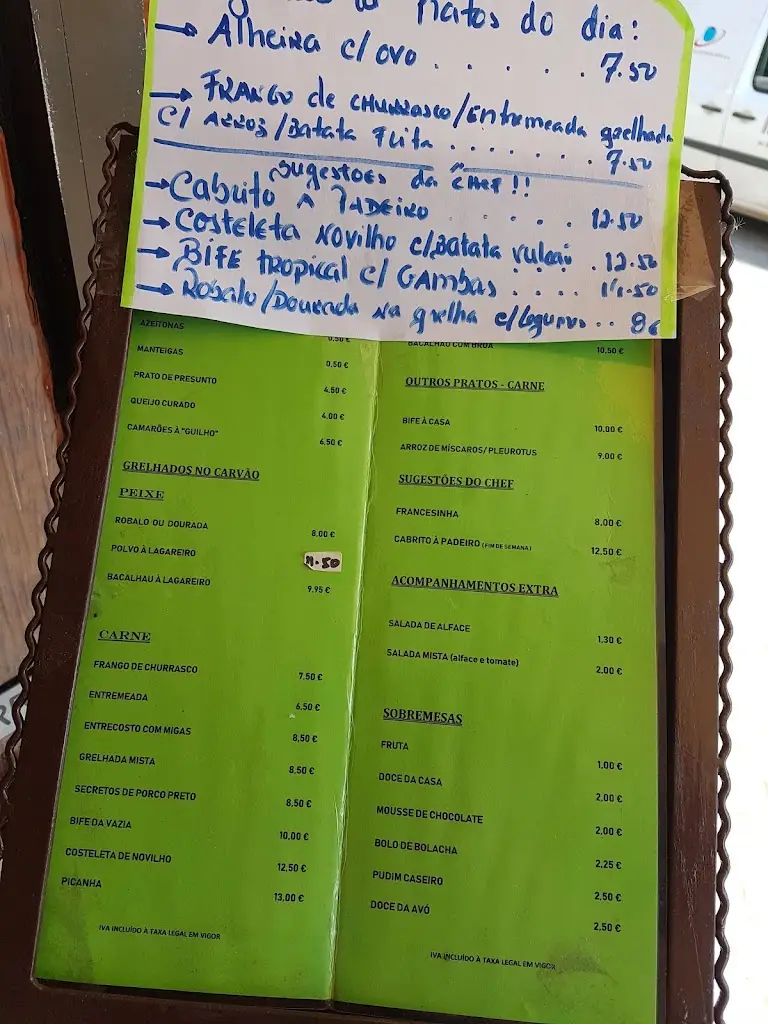 Pratos do dia:
→ Alheira c/ ovo . . . . . 7.50
→ FRANGO de CHURRASCO/Entremeada grelhada
C/ ARROZ/Batata Frita . . . . . . . 7.50
Sugestões da CHEF!!
→ Cabrito A PADEIRO . . . . . . 12.50
→ COSTELETA NOVILHO c/Batata . 12.50
→ BIFE tropical c/ GAMBAS . . . . 11.50
→ Robalo/Dourada na grelha c/legumes . . 8€
AZEITONAS 0,50 €
MANTEIGAS 0,50 €
PRATO DE PRESUNTO 4,50 €
QUEIJO CURADO 4,00 €
CAMARÕES À "GUILHO" 6,50 €
GRELHADOS NO CARVÃO
PEIXE
ROBALO OU DOURADA 8,00 €
POLVO À LAGAREIRO 11.50
BACALHAU À LAGAREIRO 9,95 €
CARNE
FRANGO DE CHURRASCO 7,50 €
ENTREMEADA 6,50 €
ENTRECOSTO COM MIGAS 8,50 €
GRELHADA MISTA 8,50 €
SECRETOS DE PORCO PRETO 8,50 €
BIFE DA VAZIA 10,00 €
COSTELETA DE NOVILHO 12,50 €
PICANHA 13,00 €
IVA INCLUÍDO À TAXA LEGAL EM VIGOR
BACALHAU COM BROA 10,50 €
OUTROS PRATOS - CARNE
BIFE À CASA 10,00 €
ARROZ DE MÍSCAROS/ PLEUROTUS 9,00 €
SUGESTÕES DO CHEF
FRANCESINHA 8,00 €
CABRITO À PADEIRO (FIM DE SEMANA) 12,50 €
ACOMPANHAMENTOS EXTRA
SALADA DE ALFACE 1,30 €
SALADA MISTA (alface e tomate) 2,00 €
SOBREMESAS
FRUTA 1,00 €
DOCE DA CASA 2,00 €
MOUSSE DE CHOCOLATE 2,00 €
BOLO DE BOLACHA 2,25 €
PUDIM CASEIRO 2,50 €
DOCE DA AVÓ 2,50 €
IVA INCLUÍDO À TAXA LEGAL EM VIGOR